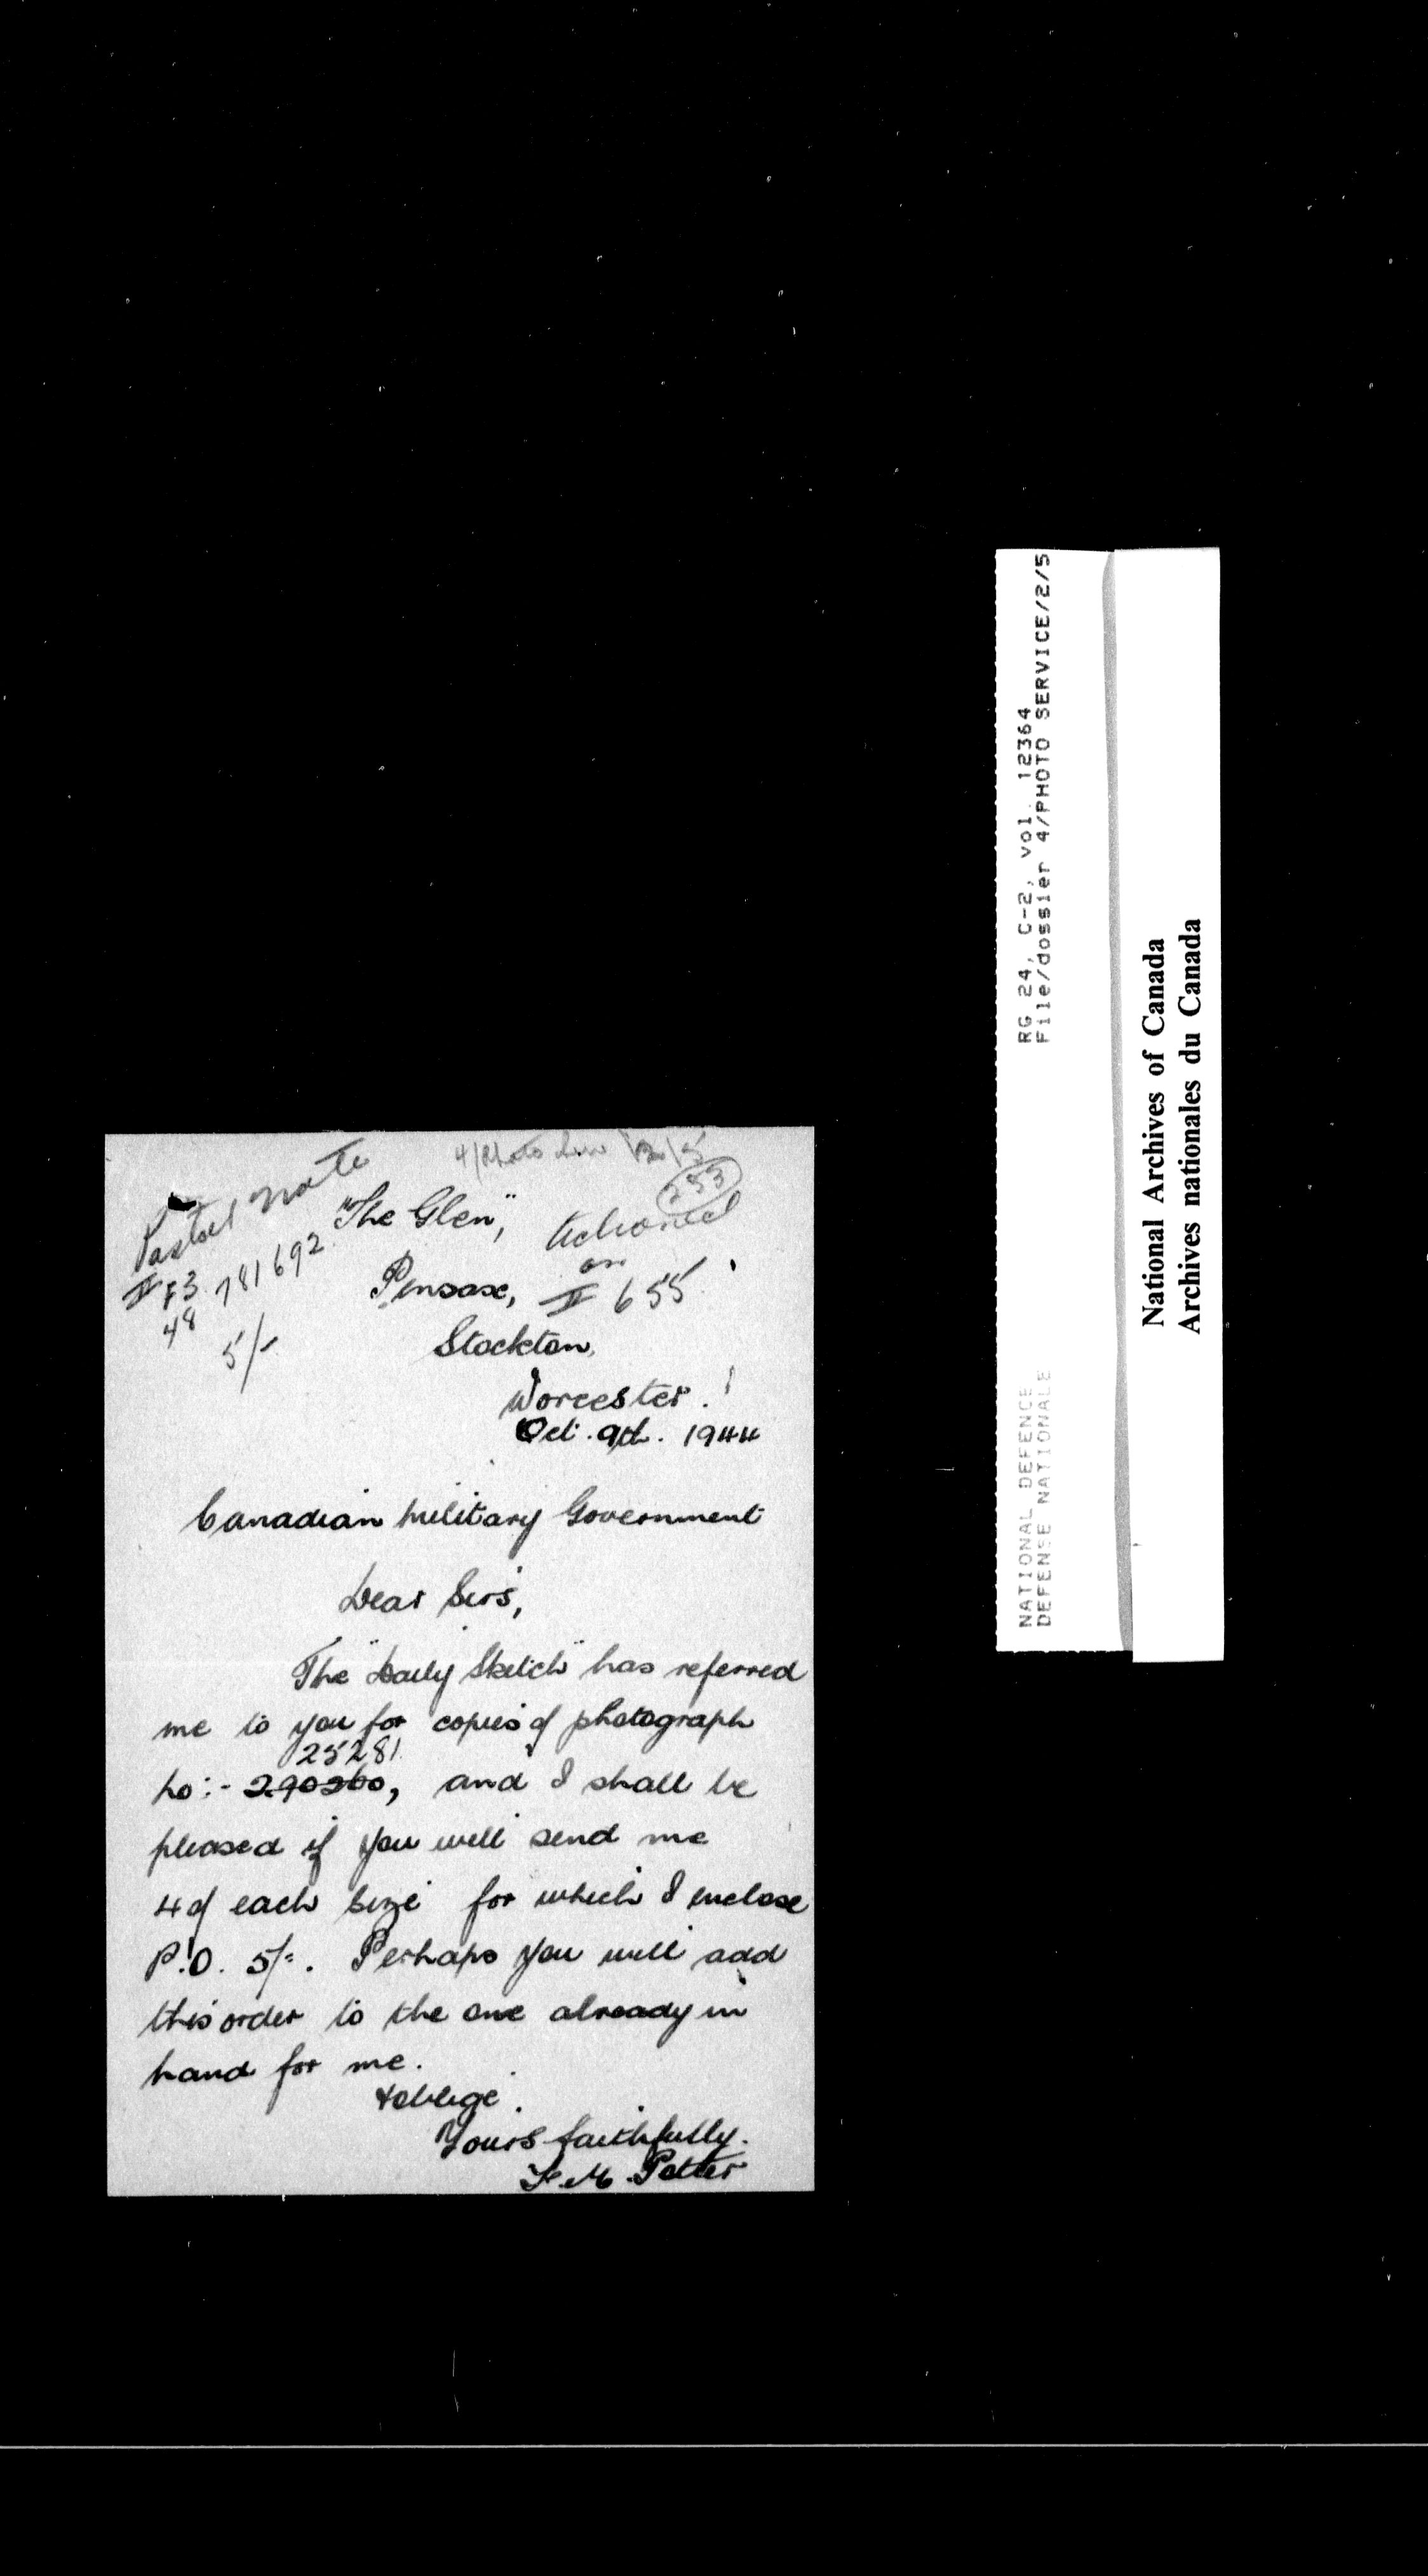 4/Photo Serv/2/5
253
Postal note
# F3 781692
48
5/-
Actioned
on
# 655
"The Glen",
Pensax,
Stockton,
Worcester.
Oct. 9th. 1944
Canadian Military Government
Dear Sirs,
The "Daily Sketch" has referred
me to you for copies of photograph
25281
no:- 290260, and I shall be
pleased if you will send me
4 of each size for which I enclose
P.O. 5/-. Perhaps you will add
this order to the one already in
hand for me.
& oblige.
Yours faithfully.
M. Potter
RG 24, C-2, vol. 12364
File/dossier 4/PHOTO SERVICE/2/5
NATIONAL DEFENCE
DEFENSE NATIONALE
National Archives of Canada
Archives nationales du Canada